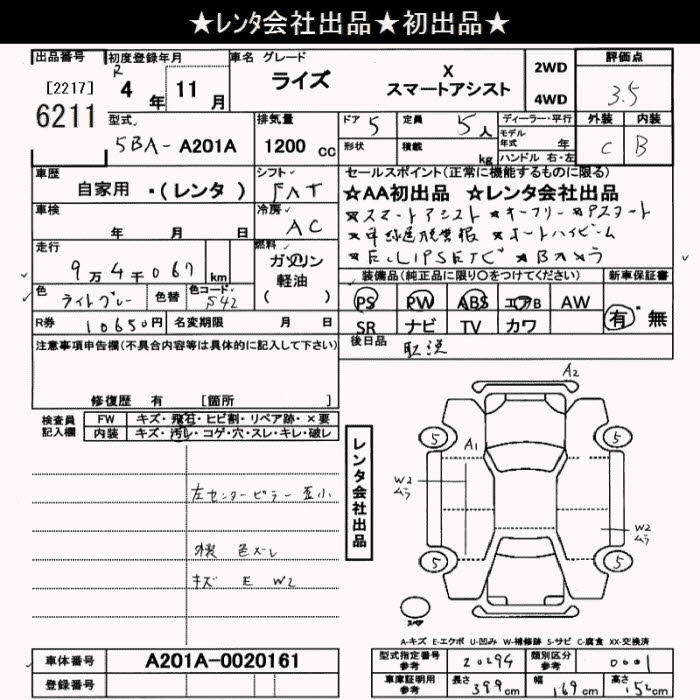 ★レンタ会社出品★初出品★
出品番号 初度登録年月 車名 グレード 評価点
[2217] R 4年 11月 ライズ X スマートアシスト 2WD 4WD 3.5
6211
型式 排気量 ドア 5 定員 5人 ディーラー・平行 外装 内装
5BA-A201A 1200cc 形状 積載 kg モデル年式 年 C B
ハンドル 右・左
車歴 シフト セールスポイント(正常に機能するものに限る)
自家用 ・(レンタ) FAT ★AA初出品 ★レンタ会社出品
車検 冷房 ★スマートアシスト ★キーフリー ★Pスタート
年 月 日 AC ★車線逸脱警報 ★オートハイビーム
走行 燃料 ★E.CLIPSETC ★Bカメラ
9万4千067km ガソリン 軽油 ( ) 装備品(純正品に限り○をつけてください) 新車保証書
色 ライトブルー 色替 色コード S42 PS PW ABS エアB AW 有・無
R券 10650円 名変期限 月 日 SR ナビ TV カワ
注意事項申告欄(不具合内容等は具体的に記入して下さい) 後日品 取説
修復歴 有 [箇所 ]
検査員記入欄 FW キズ・飛石・ヒビ割・リペア跡・×要
内装 キズ・汚レ・コゲ・穴・スレ・キレ・破レ
A2
5 5
A1
W2 ムラ
レンタ会社出品
左センターピラー 歪小
W2 ムラ
外装 色ズレ
キズ E W2
5 5
スペア
A-キズ E-エクボ U-凹み W-補修跡 S-サビ C-腐食 XX-交換済
車体番号 A201A-0020161 型式指定番号 参考 20294 類別区分 参考 0001
登録番号 車庫証明用 参考 長さ 399cm 幅 169cm 高さ 152cm